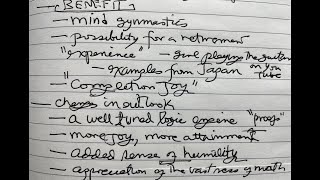 [BENEFIT]
— mind gymnastics
— possibility for a retirement
"experience" — Girl playing the guitar on You Tube
— examples from Japan
— "Completion Joy"
— changes in outlook
— a well tuned logic engine "proofs"
— more joy, more attainment
— added sense of humility
— appreciation of the vastness of math